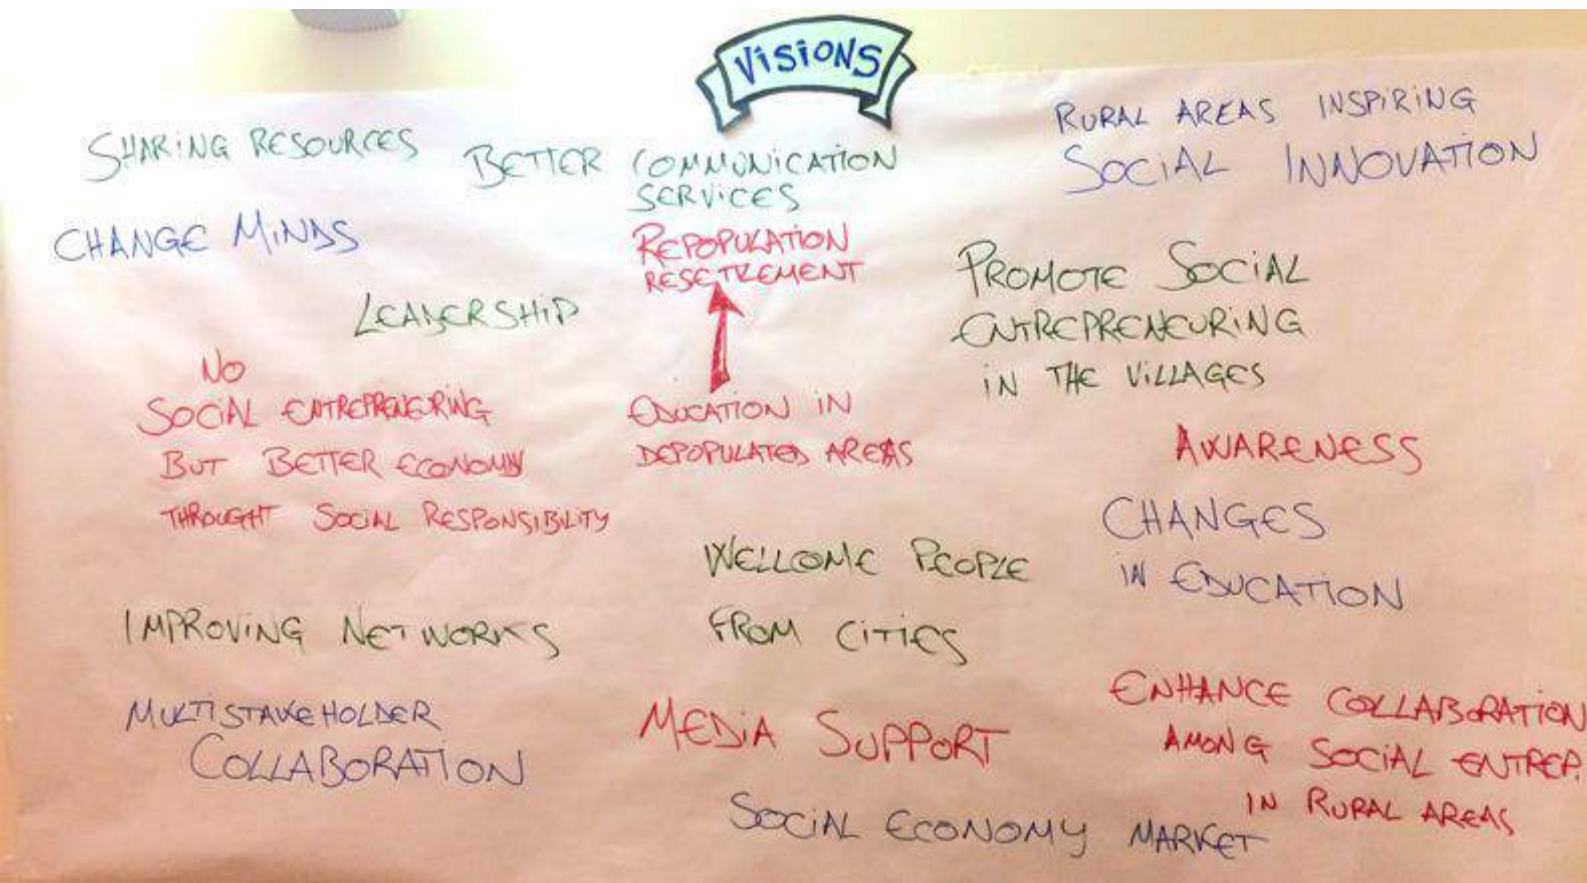 VISIONS
SHARING RESOURCES
BETTER COMMUNICATION
SERVICES
RURAL AREAS INSPIRING
SOCIAL INNOVATION
CHANGE MINDS
REPOPULATION
RESETTLEMENT
LEADERSHIP
PROMOTE SOCIAL
ENTREPRENEURING
IN THE VILLAGES
NO
SOCIAL ENTREPRENEURING
BUT BETTER ECONOMY
THROUGHT SOCIAL RESPONSIBILITY
EDUCATION IN
DEPOPULATED AREAS
AWARENESS
CHANGES
IN EDUCATION
WELLCOME PEOPLE
FROM CITIES
IMPROVING NETWORKS
MULTISTAKEHOLDER
COLLABORATION
MEDIA SUPPORT
ENHANCE COLLABORATION
AMONG SOCIAL ENTREP.
IN RURAL AREAS
SOCIAL ECONOMY MARKET